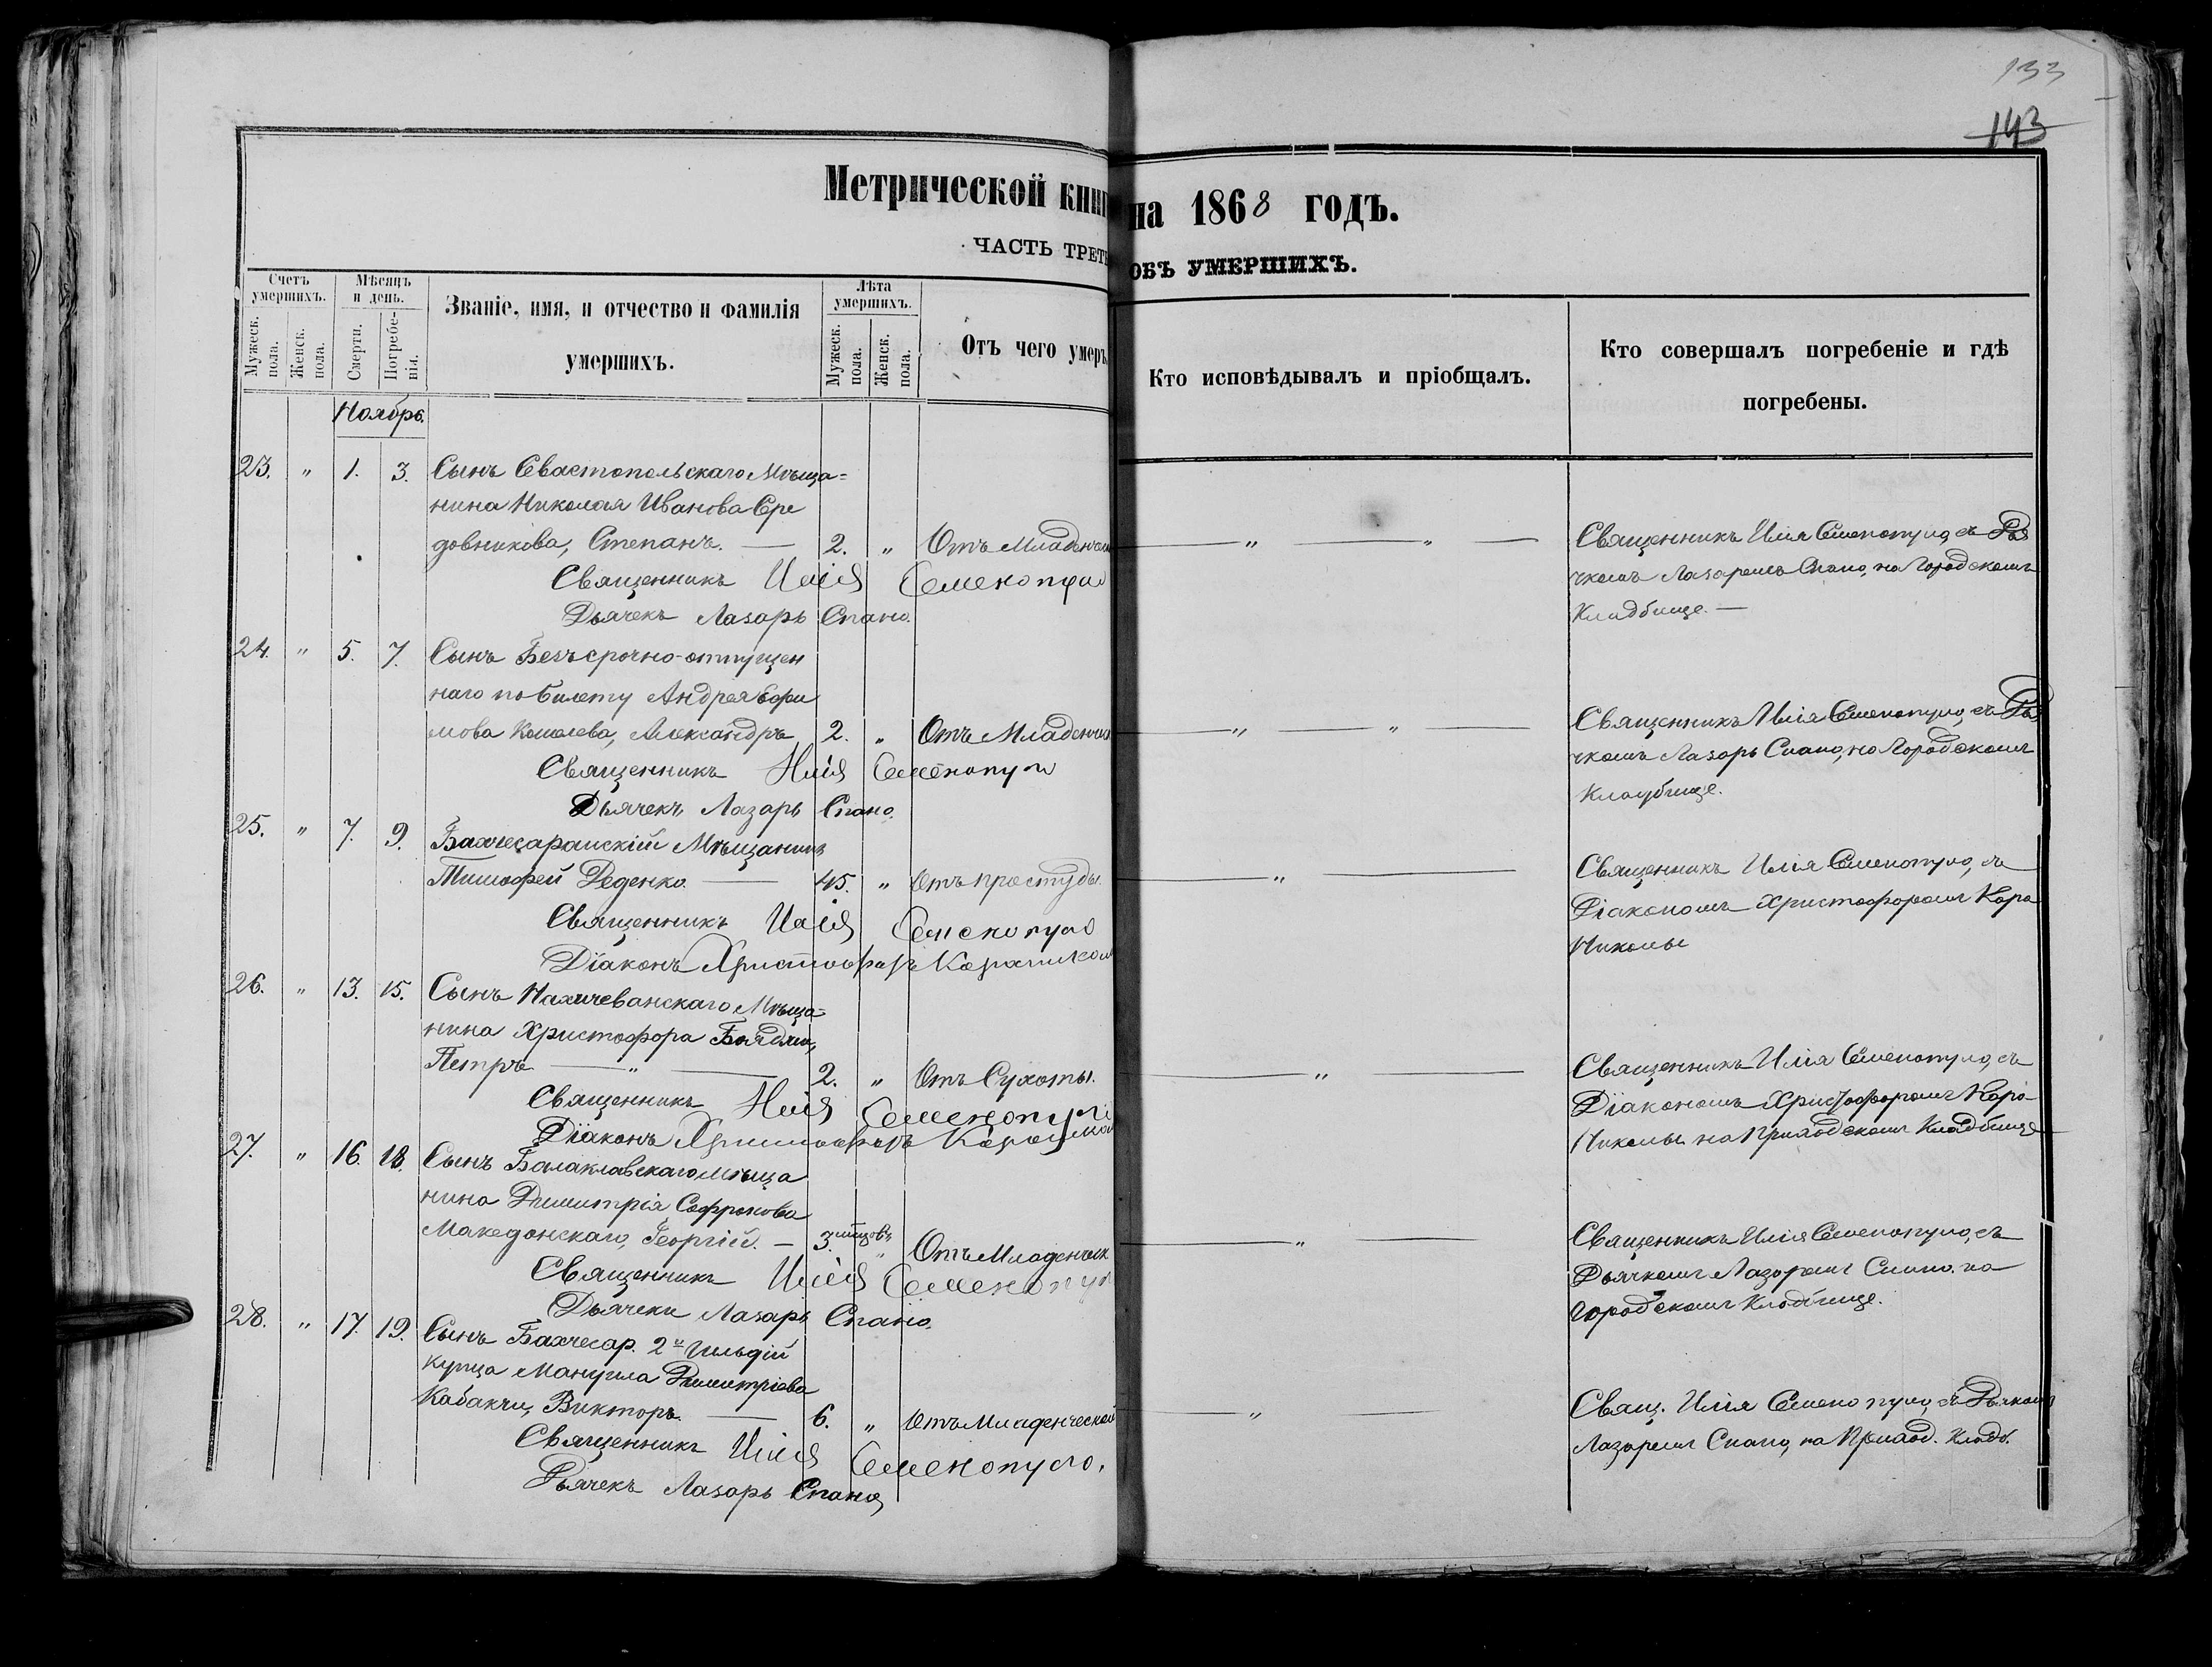 133
143
Метрической книг на 1868 годъ.
ЧАСТЬ ТРЕТЬ ОБЪ УМЕРШИХЪ.
Счетъ умершихъ.
Мужеск. пола.
Женск. пола.
Мѣсяцъ и день.
Смерти.
Погребенія.
Званіе, имя, и отчество и фамилія
умершихъ.
Лѣта умершихъ.
Мужеск. пола.
Женск. пола.
Отъ чего умеръ
Кто исповѣдывалъ и пріобщалъ.
Кто совершалъ погребеніе и гдѣ
погребены.
Ноябрь.
23. " 1. 3. Сынъ Севастопольскаго Мѣща=
нина Николая Иванова Сре
довникова, Степанъ. — 2. " Отъ Младенчес — " — " —
Священникъ Илія Семенопуло
Дьячекъ Лазарь Спано.
Священникъ Илія Семенопуло съ Дья
чкомъ Лазаремъ Спано, на Городскомъ
Кладбище. —
24. " 5. 7. Сынъ Безъсрочно-отпущен
наго по билету Андрея Ефи
мова Кошелева, Александръ 2. " Отъ Младенчес — " — " —
Священникъ Илія Семенопуло
Дьячекъ Лазарь Спано.
Священникъ Илія Семенопуло, съ Дья
чкомъ Лазарь Спано, на Городскомъ
Кладбище.
25. " 7. 9. Бахчесарайскій Мѣщанинъ
Тимофей Деденко. — 45. " Отъ простуды. — " —
Священникъ Илія Семенопуло
Діаконъ Христофоръ Караникол
Священникъ Илія Семенопуло, съ
Діакономъ Христофоромъ Кара
Николы
26. " 13. 15. Сынъ Нахичеванскаго Мѣща=
нина Христофора
Петръ — " — 2. " Отъ Сухоты. — " —
Священникъ Илія Семенопуло
Діаконъ Христофоръ
Священникъ Илія Семенопуло, съ
Діакономъ Христофоромъ Кара-
Николы на Приходскомъ Кладбище
27. " 16. 18. Сынъ Балаклавскаго Мѣща
нина Димитрія Софронова
Македонскаго, Георгій. — 3. мѣсяцовъ " Отъ Младенческ — " —
Священникъ Илія Семенопул
Дьячекъ Лазарь Спано.
Священникъ Илія Семенопуло, съ
Дьячкомъ Лазаремъ Спано. на
Городскомъ Кладбище.
28. " 17. 19. Сынъ Бахчесар. 2й Гильдіи
купца Мануила Димитріева
Кабакчи, Викторъ. — 6. " Отъ Младенческой — " —
Священникъ Илія Семенопуло.
Дьячекъ Лазарь Спано,
Свящ. Илія Семенопуло, съ Дьячкомъ
Лазаремъ Спано, на Приход. Кладб.